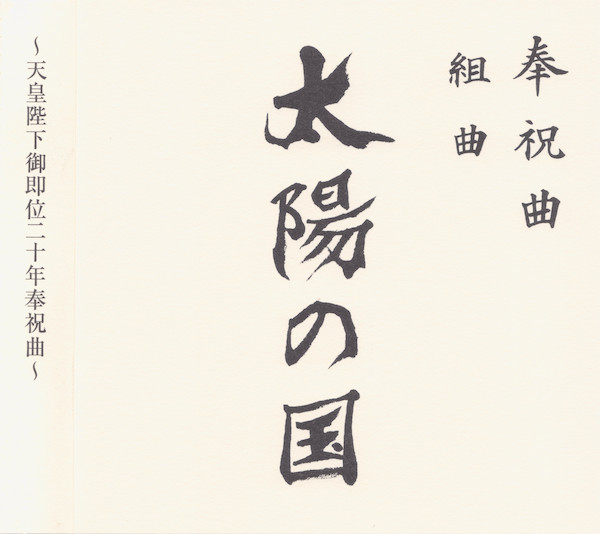 奉祝曲
組曲
太陽の国
～天皇陛下御即位二十年奉祝曲～